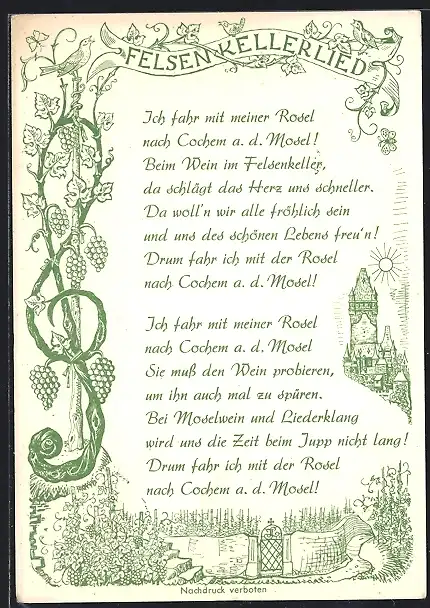 FELSEN-KELLERLIED
Ich fahr mit meiner Rosel
nach Cochem a. d. Mosel!
Beim Wein im Felsenkeller,
da schlägt das Herz uns schneller.
Da woll'n wir alle fröhlich sein
und uns des schönen Lebens freu'n!
Drum fahr ich mit der Rosel
nach Cochem a. d. Mosel!
Ich fahr mit meiner Rosel
nach Cochem a. d. Mosel
Sie muß den Wein probieren,
um ihn auch mal zu spüren.
Bei Moselwein und Liederklang
wird uns die Zeit beim Jupp nicht lang!
Drum fahr ich mit der Rosel
nach Cochem a. d. Mosel!
Nachdruck verboten